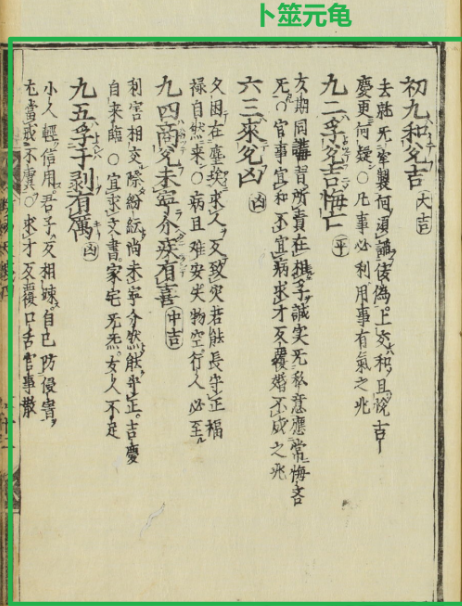 卜筮元龟
初九和兌吉 大吉
去就无牽製何須謟佞為上交和且悅吉
慶更何疑〇凡事必利用事有氣之兆
九二孚兌吉悔亡 平
友朋同講習所貴在相孚誠实无私意應常悔吝
无〇官事宜和不宜病求才反覆婚不成之兆
六三來兌凶 凶
久困在塵埃求人反致灾若能長守正福
禄自然来〇病且难安失物空行人必至
九四商兌未寧介疾有喜 中吉
利害相交際紛紜尚未寧介然能守正吉慶
自来臨〇宜求文書家宅无炁女人不足
九五孚于剥有厲 凶
小人輕信用君子反相疎自己防侵害
尤當戒不虞〇求才反覆口舌官事散